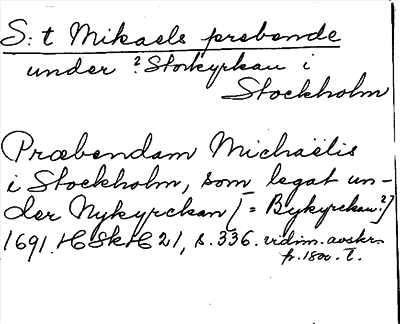 S:t Mikaels prebende
under ? Storkyrkan i
Stockholm
Præbendam Michaëlis
i Stockholm, som legat un-
der Nykyrckan [= Bykyrckan?]
1691. HSkH 21, s. 336. vidim. avskr.
fr. 1800-t.